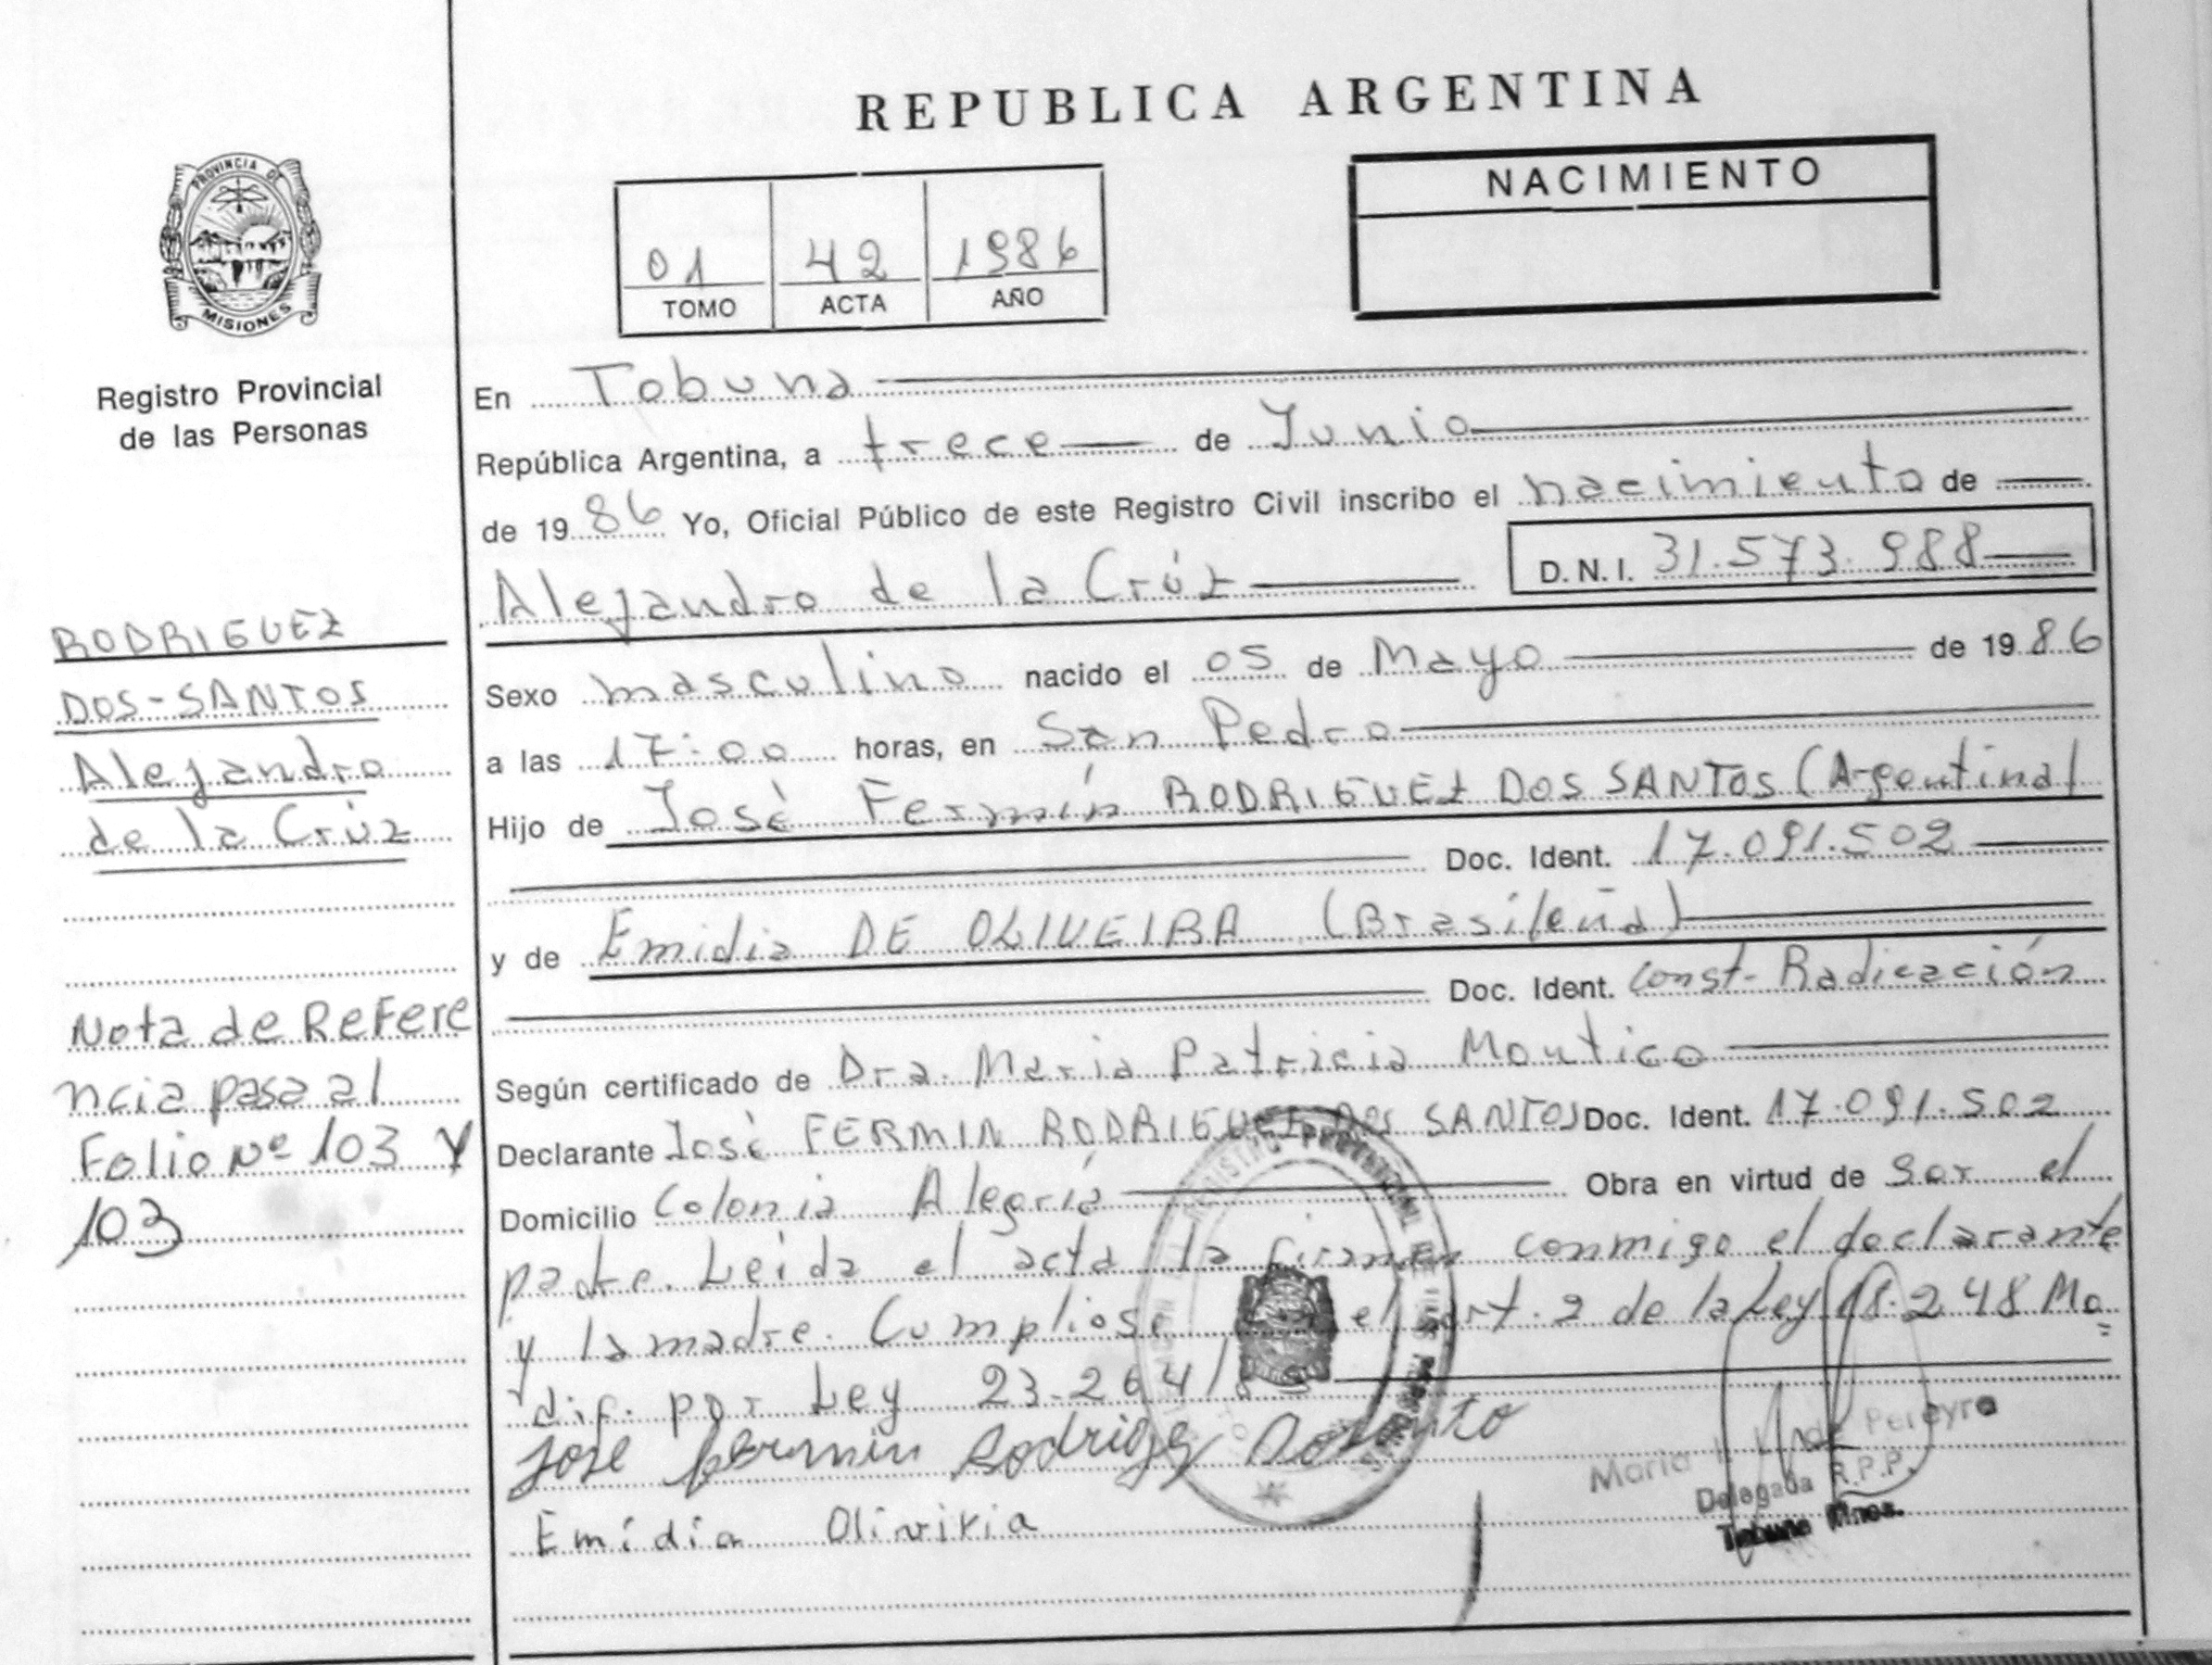 REPUBLICA ARGENTINA
PROVINCIA DE
MISIONES
Registro Provincial
de las Personas
01 42 1986
TOMO ACTA AÑO
NACIMIENTO
En Tobuna
República Argentina, a trece de Junio
de 1986 Yo, Oficial Público de este Registro Civil inscribo el nacimiento de
Alejandro de la Crúz D.N.I. 31.573.988
RODRIGUEZ
DOS-SANTOS
Alejandro
de la Crúz
Nota de Refere
ncia pasa al
Folio Nº 103 Y
103
Sexo masculino nacido el 05 de Mayo de 1986
a las 17:00 horas, en San Pedro
Hijo de José Fermín RODRIGUEZ DOS SANTOS (Argentina)
Doc. Ident. 17.091.502
y de Emidia DE OLIVEIRA (Brasileña)
Doc. Ident. Const-Radicación
Según certificado de Dra. Maria Patricia Moutico
Declarante José FERMIN RODRIGUEZ DOS SANTOS Doc. Ident. 17.091.502
Domicilio Colonia Alegría Obra en virtud de Ser el
padre. Leida el acta la firman conmigo el declarante
y la madre. Cumpliose el art. 2 de la Ley 18.248 Mo
dif. por Ley 23.264/
José fermin Rodrigz
Emidia Oliviria
Maria de Pereyra
Delegada R.P.P.
Tobuna Mnes.